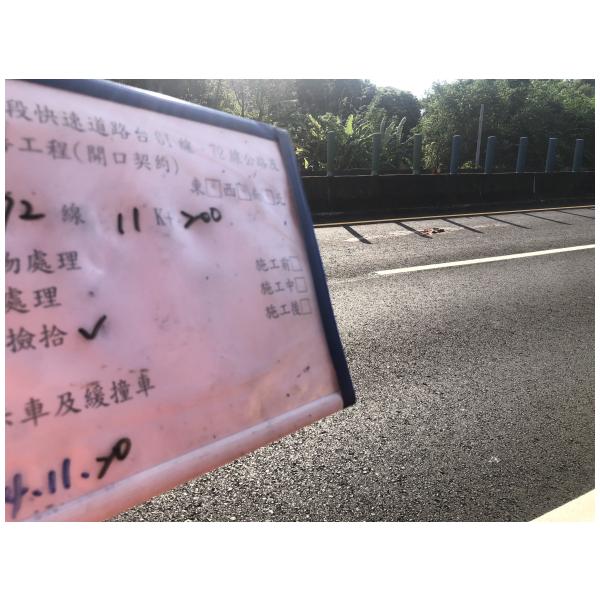 段快速道路台61線、72線公路及
工程(開口契約)
東□西□南□北
72 線 11 K+200
物處理 施工前□
處理 施工中□
撿拾✓ 施工後□
車及緩撞車
4.11.20